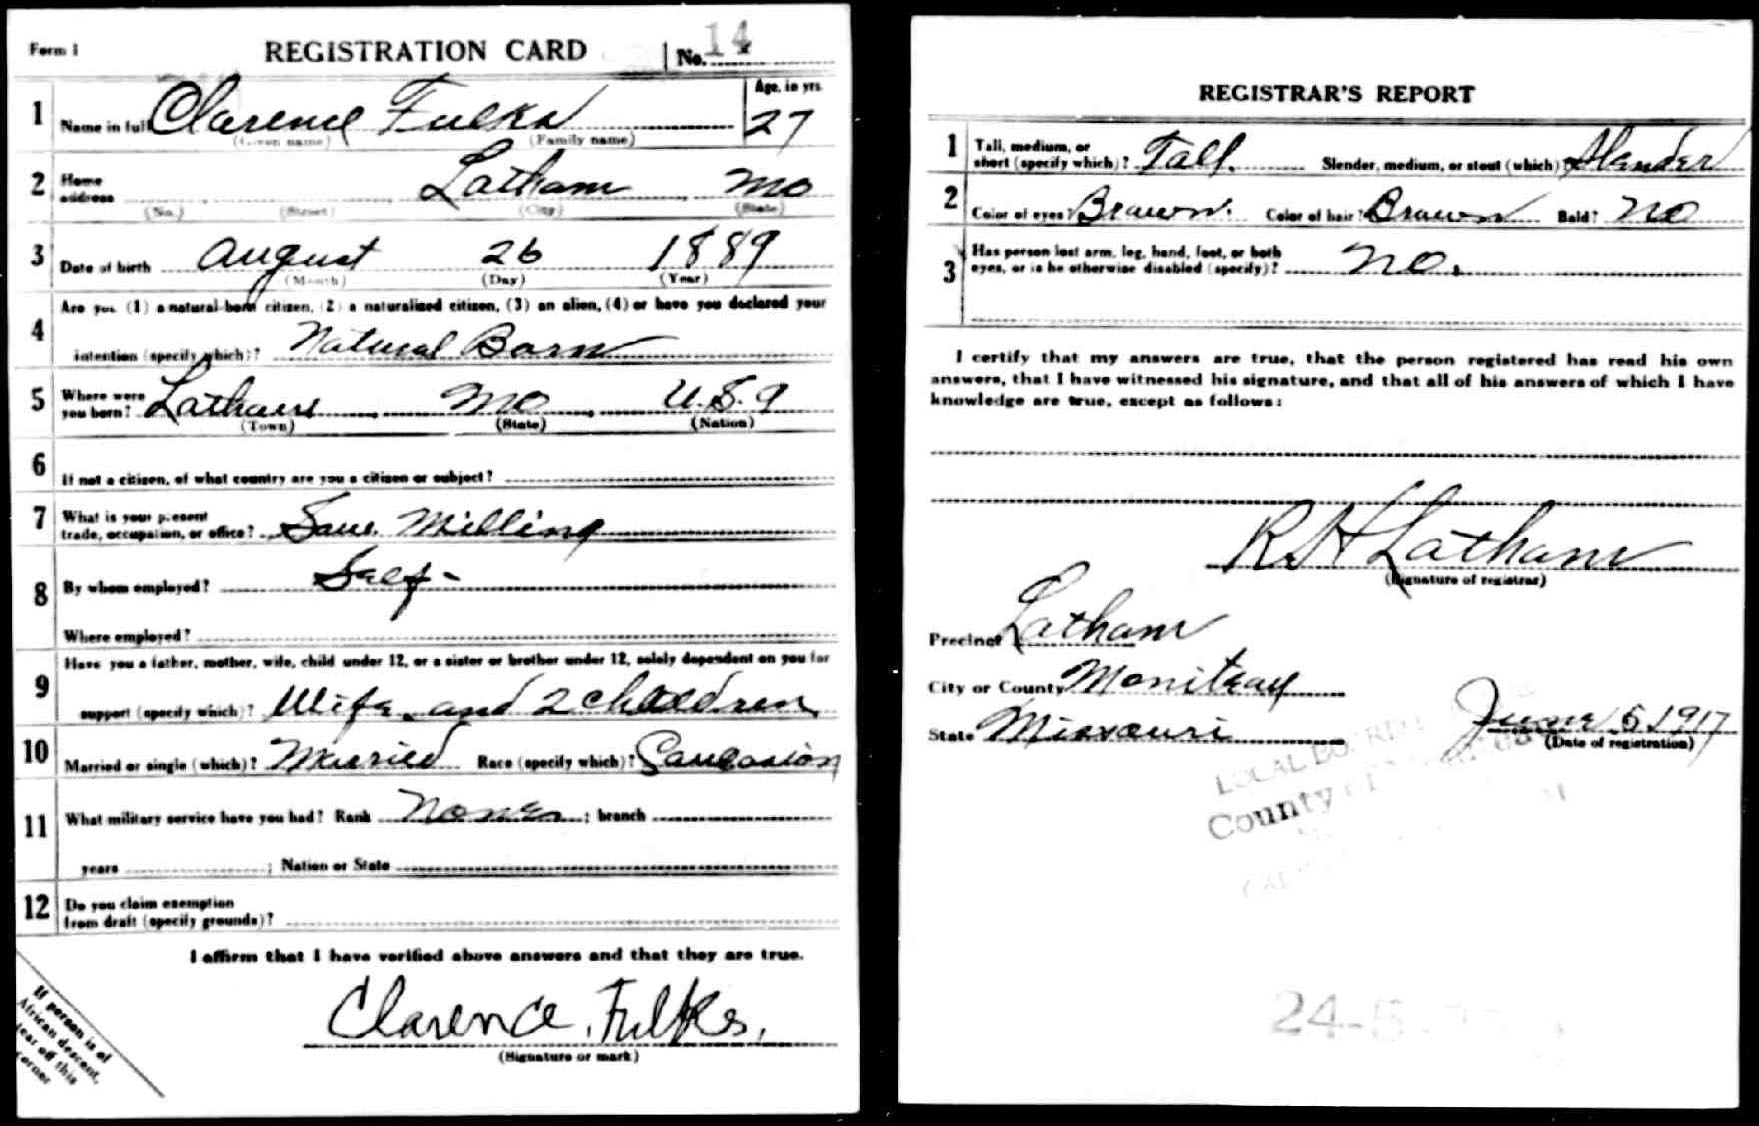 Form 1 REGISTRATION CARD No. 14
1 Name in full Clarence Fulks Age, in yrs. 27
(Given name) (Family name)
2 Home address Latham Mo
(No.) (Street) (City) (State)
3 Date of birth August 26 1889
(Month) (Day) (Year)
4 Are you (1) a natural-born citizen, (2) a naturalized citizen, (3) an alien, (4) or have you declared your
intention (specify which)? Natural Born
5 Where were you born? Latham Mo U.S.A
(Town) (State) (Nation)
6 If not a citizen, of what country are you a citizen or subject?
7 What is your present trade, occupation, or office? Saw Milling
8 By whom employed? Self-
Where employed?
9 Have you a father, mother, wife, child under 12, or a sister or brother under 12, solely dependent on you for
support (specify which)? Wife and 2 children
10 Married or single (which)? Married Race (specify which)? Caucasion
11 What military service have you had? Rank None ; branch
years ; Nation or State
12 Do you claim exemption
from draft (specify grounds)?
I affirm that I have verified above answers and that they are true.
Clarence Fulks.
(Signature or mark)
If person is of
African descent,
tear off this
corner
REGISTRAR'S REPORT
1 Tall, medium, or short (specify which)? Tall. Slender, medium, or stout (which) Slender
2 Color of eyes? Brown. Color of hair? Brown Bald? No
3 Has person lost arm, leg, hand, foot, or both
eyes, or is he otherwise disabled (specify)? No.
I certify that my answers are true, that the person registered has read his own
answers, that I have witnessed his signature, and that all of his answers of which I have
knowledge are true, except as follows:
R H Latham
(Signature of registrar)
Precinct Latham
City or County Moniteau
State Missouri June 5 1917
(Date of registration)
LOCAL BOARD
County of
24-5